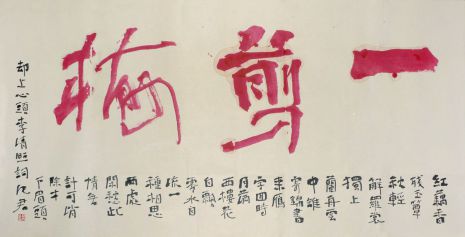 一剪梅
紅藕香
殘玉簟
秋輕
解羅裳
獨上
蘭舟雲
中誰
寄錦書
來雁
字回時
月滿
西樓花
自飄
零水自
流一
種相思
兩處
閒愁此
情無
計可消
除才
下眉頭
却上心頭李清照詞